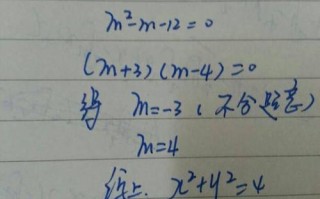 m²-m-12=0
(m+3)(m-4)=0
得 m=-3(不合题意)
m=4
综上. x²+y²=4